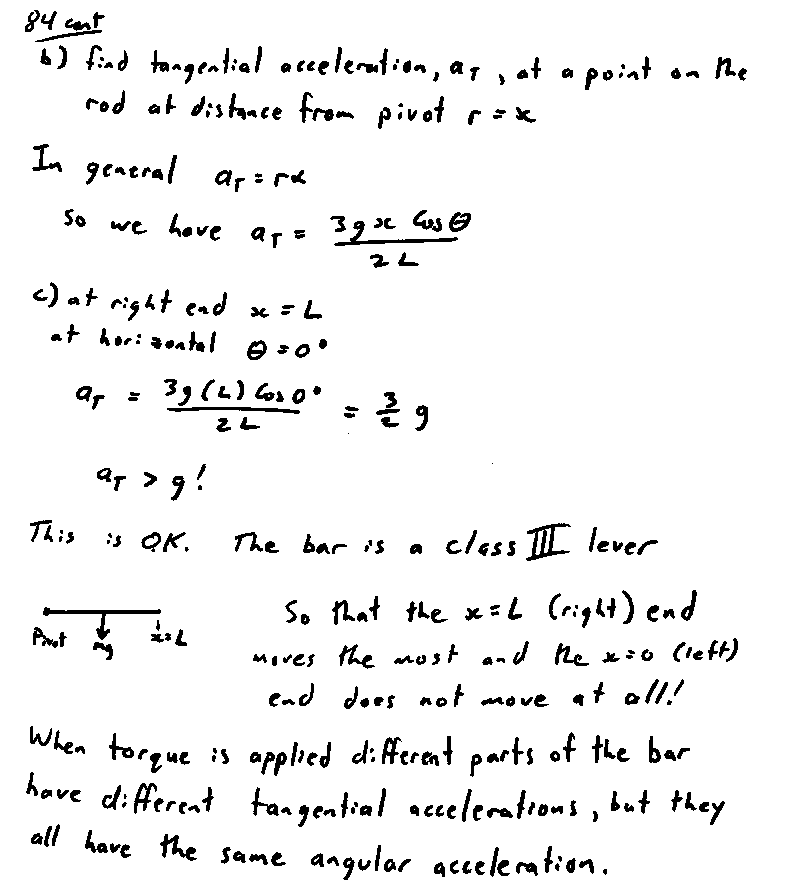 84 cont
b) find tangential acceleration, a_T, at a point on the
rod at distance from pivot r = x
In general a_T = rα
So we have a_T = 3 g x Cos θ / 2 L
c) at right end x = L
at horizontal θ = 0°
a_T = 3g (L) Cos 0° / 2 L = 3/2 g
a_T > g!
This is OK. The bar is a class III lever
So that the x = L (right) end
Pivot mg x=L
moves the most and the x=0 (left)
end does not move at all!
When torque is applied different parts of the bar
have different tangential accelerations, but they
all have the same angular acceleration.